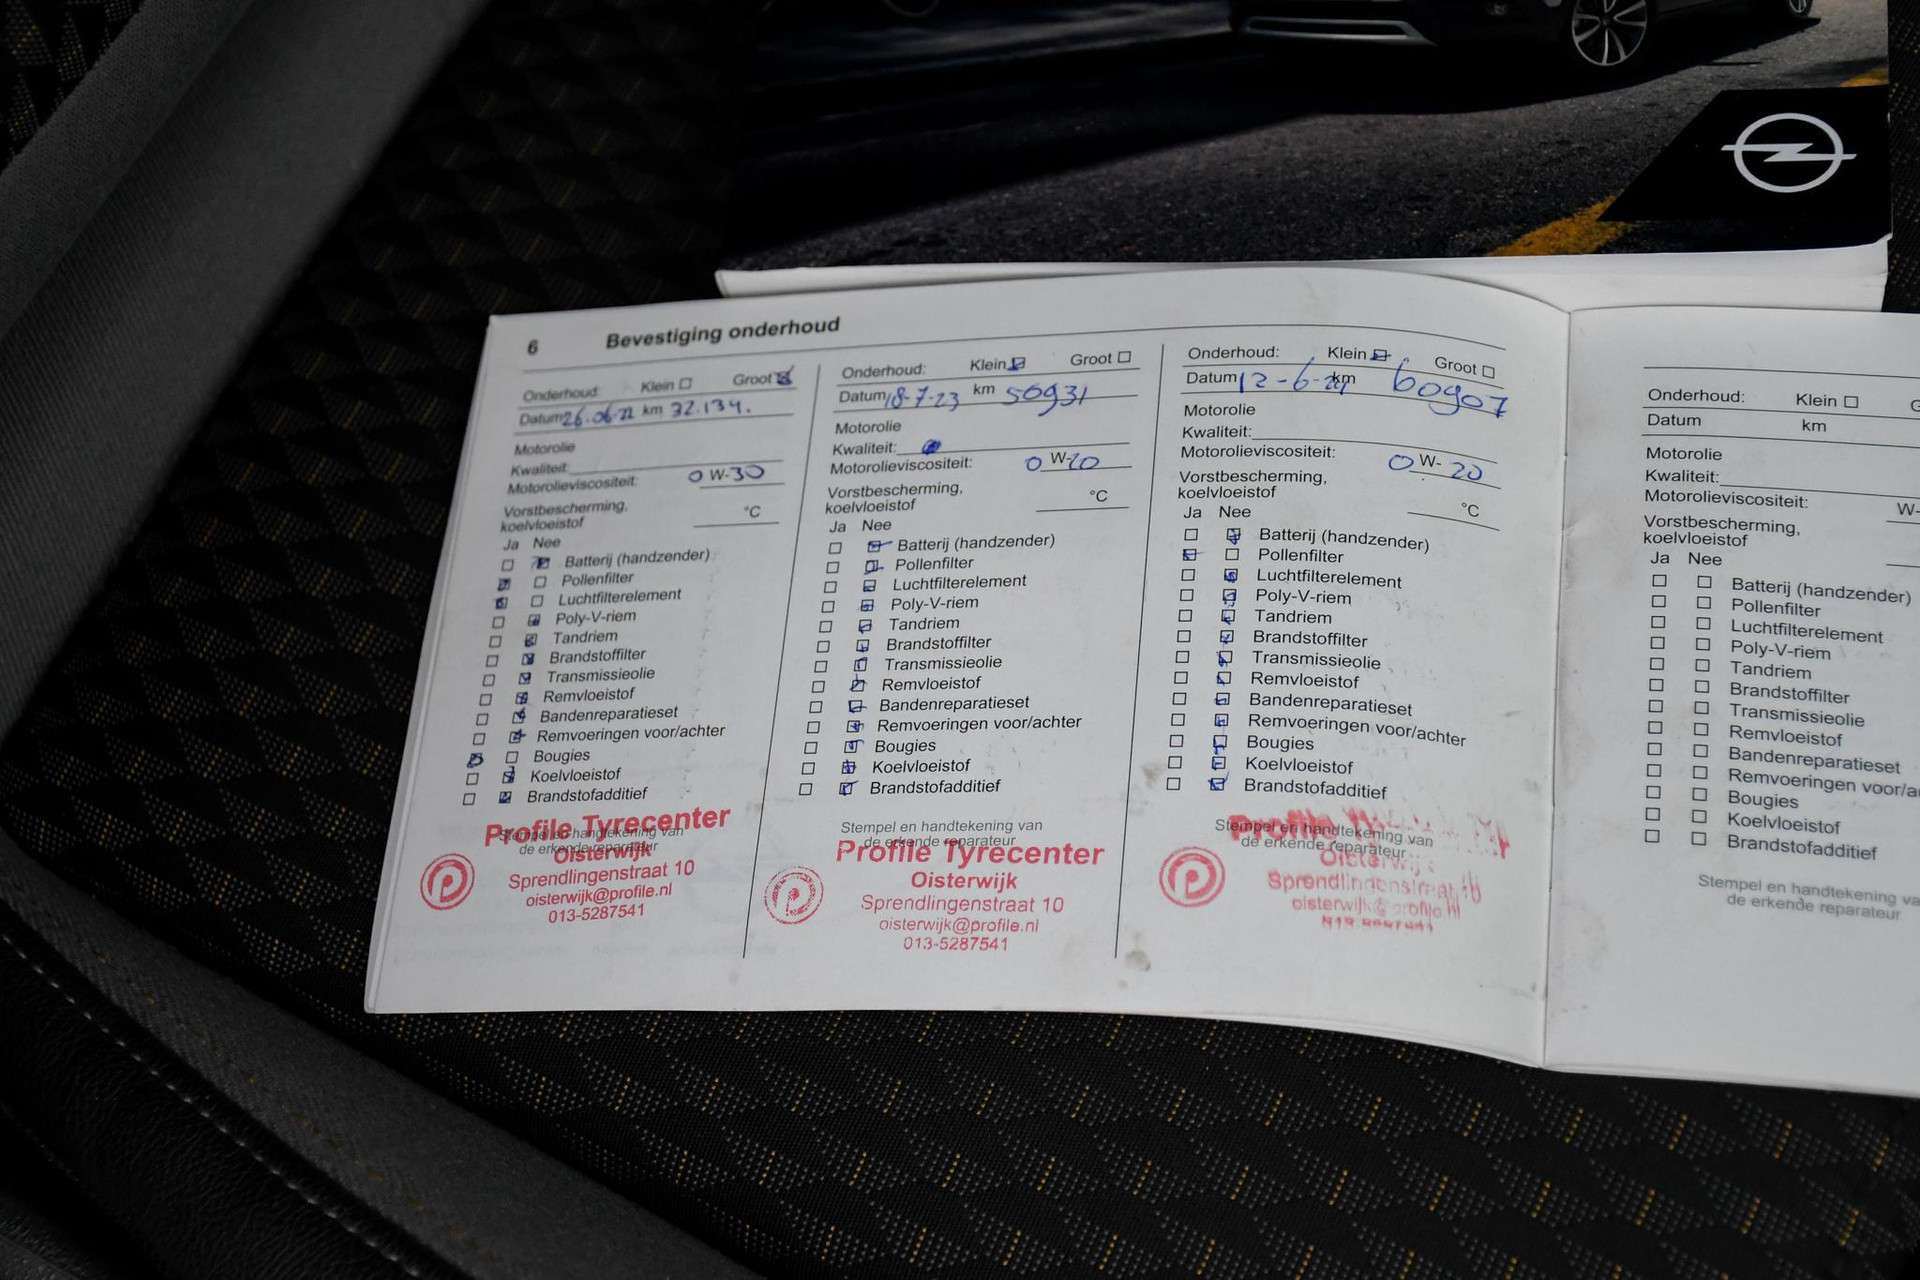 6 Bevestiging onderhoud
Onderhoud: Klein Groot
Datum 26.06-22 km 32.134.
Motorolie
Kwaliteit:
Motorolieviscositeit: 0 W-30
Vorstbescherming,
koelvloeistof °C
Ja Nee
Batterij (handzender)
Pollenfilter
Luchtfilterelement
Poly-V-riem
Tandriem
Brandstoffilter
Transmissieolie
Remvloeistof
Bandenreparatieset
Remvoeringen voor/achter
Bougies
Koelvloeistof
Brandstofadditief
Stempel en handtekening van
de erkende reparateur
Profile Tyrecenter
Oisterwijk
Sprendlingenstraat 10
oisterwijk@profile.nl
013-5287541
Onderhoud: Klein Groot
Datum 18-7-23 km 50931
Motorolie
Kwaliteit:
Motorolieviscositeit: 0 W-20
Vorstbescherming,
koelvloeistof °C
Ja Nee
Batterij (handzender)
Pollenfilter
Luchtfilterelement
Poly-V-riem
Tandriem
Brandstoffilter
Transmissieolie
Remvloeistof
Bandenreparatieset
Remvoeringen voor/achter
Bougies
Koelvloeistof
Brandstofadditief
Stempel en handtekening van
de erkende reparateur
Profile Tyrecenter
Oisterwijk
Sprendlingenstraat 10
oisterwijk@profile.nl
013-5287541
Onderhoud: Klein Groot
Datum 12-6-24 km 60907
Motorolie
Kwaliteit:
Motorolieviscositeit: 0 W-20
Vorstbescherming,
koelvloeistof °C
Ja Nee
Batterij (handzender)
Pollenfilter
Luchtfilterelement
Poly-V-riem
Tandriem
Brandstoffilter
Transmissieolie
Remvloeistof
Bandenreparatieset
Remvoeringen voor/achter
Bougies
Koelvloeistof
Brandstofadditief
Stempel en handtekening van
de erkende reparateur
Profile
Oisterwijk
Sprendlingenstraat 10
oisterwijk@profile.nl
Onderhoud: Klein G
Datum km
Motorolie
Kwaliteit:
Motorolieviscositeit: W-
Vorstbescherming,
koelvloeistof
Ja Nee
Batterij (handzender)
Pollenfilter
Luchtfilterelement
Poly-V-riem
Tandriem
Brandstoffilter
Transmissieolie
Remvloeistof
Bandenreparatieset
Remvoeringen voor/a
Bougies
Koelvloeistof
Brandstofadditief
Stempel en handtekening va
de erkende reparateur